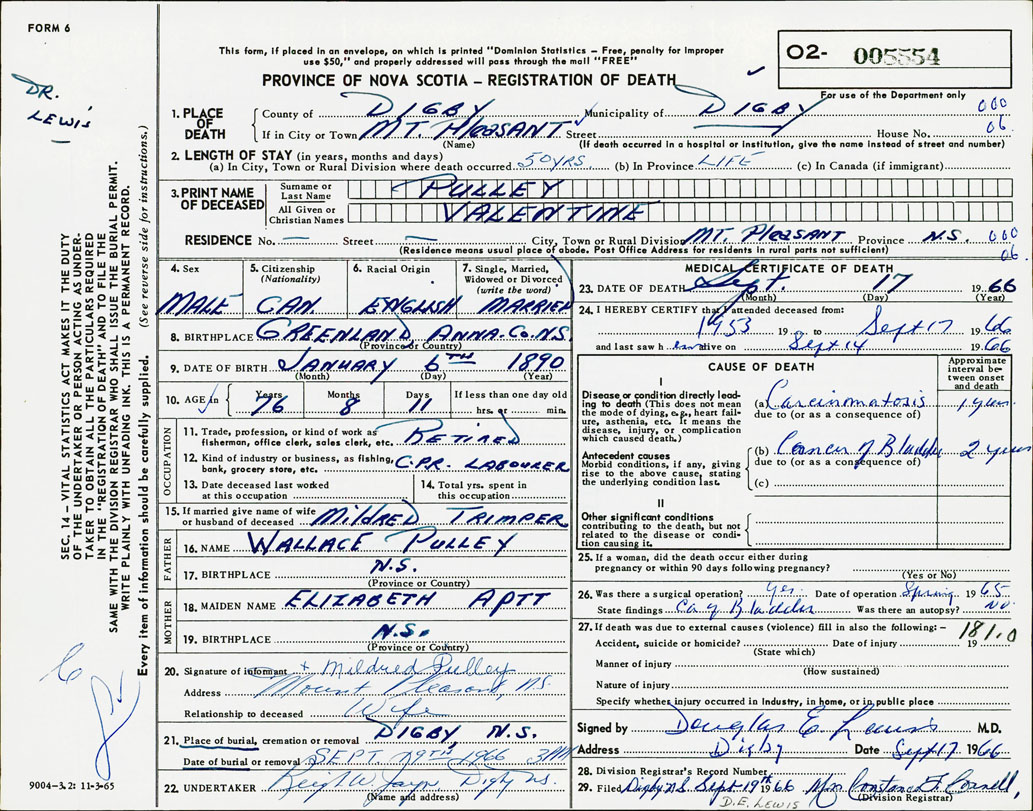 FORM 6
This form, if placed in an envelope, on which is printed "Dominion Statistics – Free, penalty for improper
use $50," and properly addressed will pass through the mail "FREE"
PROVINCE OF NOVA SCOTIA – REGISTRATION OF DEATH
O2- 005554
For use of the Department only
DR.
LEWIS
SEC. 14 – VITAL STATISTICS ACT MAKES IT THE DUTY
OF THE UNDERTAKER OR PERSON ACTING AS UNDER-
TAKER TO OBTAIN ALL THE PARTICULARS REQUIRED
IN THE "REGISTRATION OF DEATH" AND TO FILE THE
SAME WITH THE DIVISION REGISTRAR WHO SHALL ISSUE THE BURIAL PERMIT.
WRITE PLAINLY WITH UNFADING INK. THIS IS A PERMANENT RECORD.
Every item of information should be carefully supplied. (See reverse side for instructions.)
1. PLACE OF DEATH
County of DIGBY Municipality of DIGBY 000
If in City or Town MT PLEASANT Street House No. 06
(Name) (If death occurred in a hospital or institution, give the name instead of street and number)
2. LENGTH OF STAY (in years, months and days)
(a) In City, Town or Rural Division where death occurred 50 YRS. (b) In Province LIFE (c) In Canada (if immigrant)
3. PRINT NAME OF DECEASED
Surname or Last Name PULLEY
All Given or Christian Names VALENTINE
RESIDENCE No. — Street — City, Town or Rural Division MT. PLEASANT Province N.S. 000
(Residence means usual place of abode. Post Office Address for residents in rural parts not sufficient) 06.
4. Sex MALE
5. Citizenship (Nationality) CAN.
6. Racial Origin ENGLISH
7. Single, Married, Widowed or Divorced (write the word) MARRIED
8. BIRTHPLACE GREENLAND ANNA. Co. N.S.
(Province or Country)
9. DATE OF BIRTH JANUARY 6TH 1890
(Month) (Day) (Year)
10. AGE in Years 76 Months 8 Days 11 If less than one day old hrs. or min.
OCCUPATION
11. Trade, profession, or kind of work as
fisherman, office clerk, sales clerk, etc. RETIRED
12. Kind of industry or business, as fishing,
bank, grocery store, etc. C.P.R. LABOURER
13. Date deceased last worked
at this occupation
14. Total yrs. spent in
this occupation
15. If married give name of wife
or husband of deceased MILDRED TRIMPER
FATHER
16. NAME WALLACE PULLEY
17. BIRTHPLACE N.S.
(Province or Country)
MOTHER
18. MAIDEN NAME ELIZABETH APTT
19. BIRTHPLACE N.S.
(Province or Country)
20. Signature of informant + Mildred Pulley
Address Mount Pleasant, N.S.
Relationship to deceased Wife
21. Place of burial, cremation or removal DIGBY, N.S.
Date of burial or removal SEPT. 19TH, 1966 3PM
22. UNDERTAKER Digby N.S.
(Name and address)
9004-3.2: 11-3-65
MEDICAL CERTIFICATE OF DEATH
23. DATE OF DEATH Sept. 17 1966
(Month) (Day) (Year)
24. I HEREBY CERTIFY that I attended deceased from:
1953 19 to Sept 17 1966
and last saw h im alive on Sept 14 1966
CAUSE OF DEATH
Approximate interval between onset and death
I
Disease or condition directly lead-
ing to death (This does not mean
the mode of dying, e.g., heart fail-
ure, asthenia, etc. It means the
disease, injury, or complication
which caused death.)
(a) Carcinomatosis 1 year
due to (or as a consequence of)
Antecedent causes
Morbid conditions, if any, giving
rise to the above cause, stating
the underlying condition last.
(b) Cancer of Bladder 2 years
due to (or as a consequence of)
(c)
II
Other significant conditions
contributing to the death, but not
related to the disease or condi-
tion causing it.
25. If a woman, did the death occur either during
pregnancy or within 90 days following pregnancy?
(Yes or No)
26. Was there a surgical operation? Yes Date of operation Spring 1965
State findings Ca of Bladder Was there an autopsy? No
27. If death was due to external causes (violence) fill in also the following: – 181.0
Accident, suicide or homicide? Date of injury 19
(State which)
Manner of injury
(How sustained)
Nature of injury
Specify whether injury occurred in Industry, in home, or in public place
Signed by Douglas E. Lewis M.D.
Address Digby Date Sept 17 1966
28. Division Registrar's Record Number
29. Filed Digby N.S. Sept 19th 1966 Mrs Constance F. Connell,
D.E. LEWIS (Division Registrar)